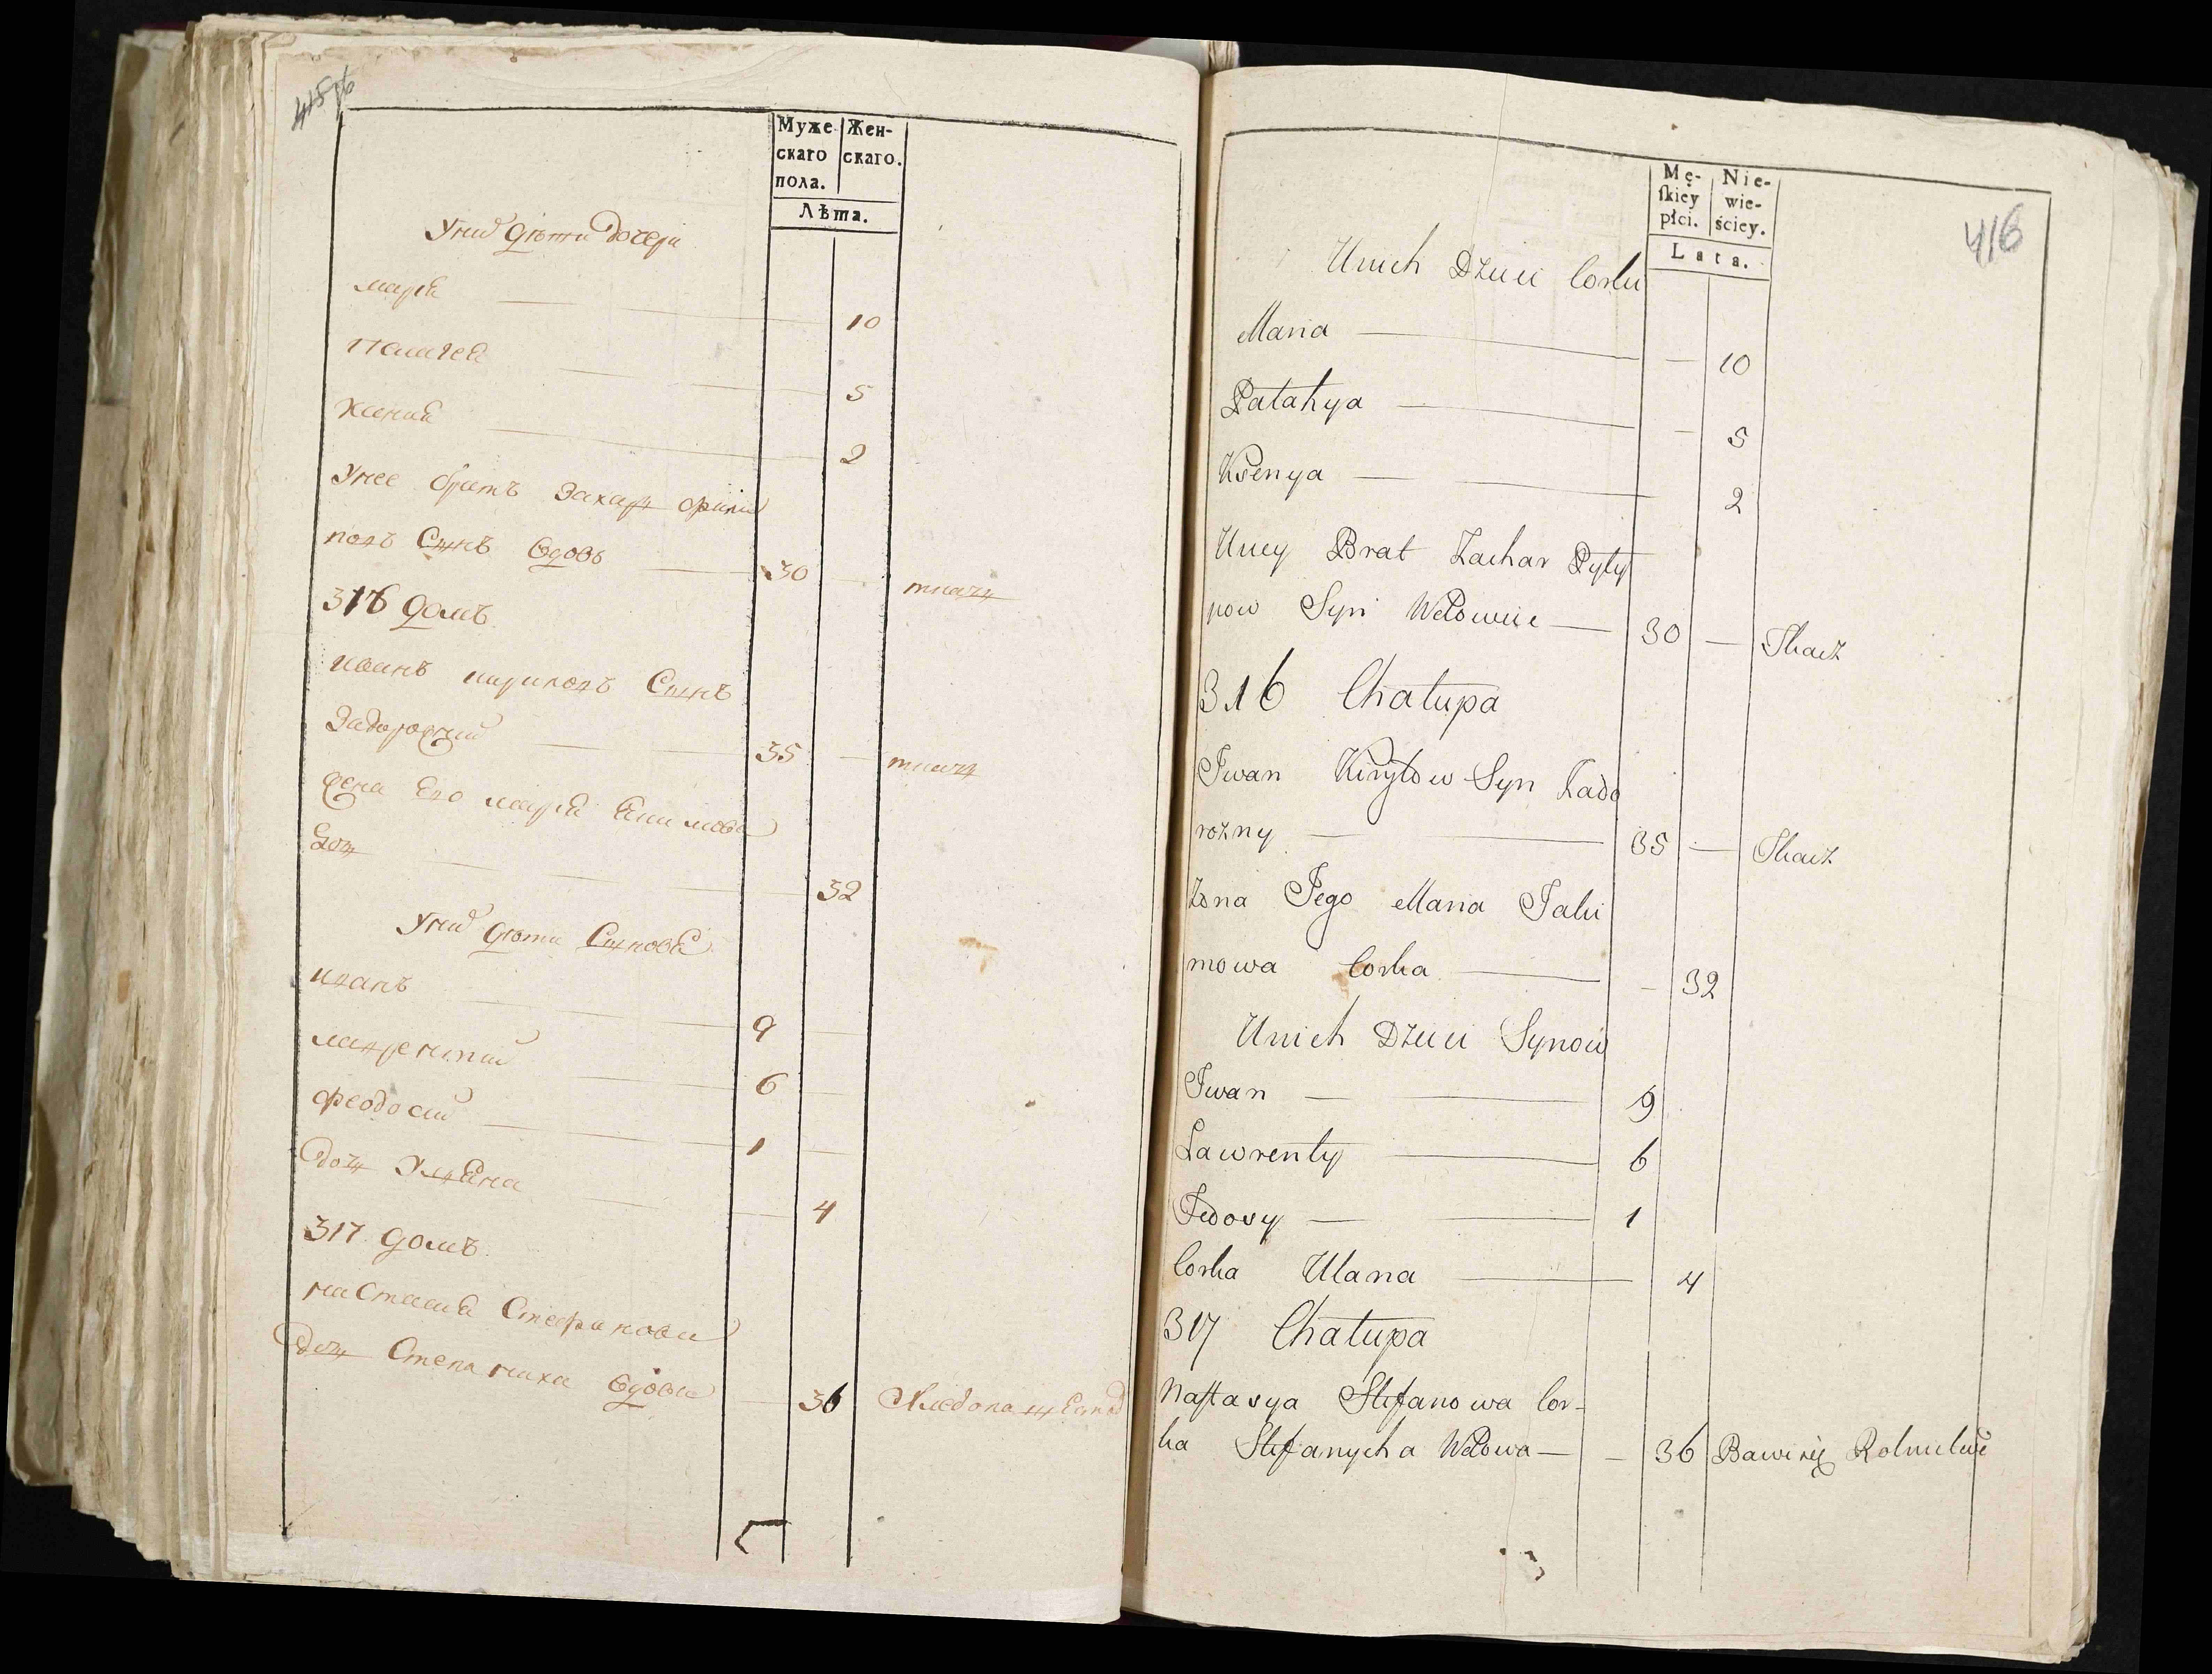 415 об
Муже Жен-
скаго скаго.
пола.
Лѣта.
Уних дѣти дочери
мария 10
Палагея 5
Ксения 2
Унее братъ Захар Фили
повъ Сынъ вдовъ 30 ткачь
316 домъ
иванъ кириловъ Сынъ
Задорожний 35 ткачь
жена его мария Якимова
доч 32
Уних дѣти Сыновя
иванъ 9
лаврентий 6
феодосий 1
доч Уляна 4
317 домъ
настасия Стефанова
доч Степаниха вдова 36 Хлебопашеством
Mę- Nie-
skiey wie-
płci. ściey.
Lata.
416
Unich Dzieci Corki
Maria 10
Palahya 5
Ksenya 2
Uney Brat Zachar Pyly
pow Syn Wdowiec 30 Tkacz
316 Chałupa
Iwan Kiryłow Syn Zado
rożny 35 Tkacz
Zona Iego Maria Iaki
mowa Corka 32
Unich Dzieci Synow
Iwan 9
Lawrenty 6
Fedosy 1
Corka Ulana 4
317 Chałupa
Nastasya Stefanowa Cor-
ka Stefanycha Wdowa 36 Bawi się Rolnictwe